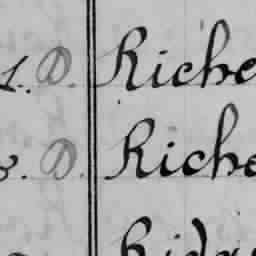 1. D. Riche
3. D. Riche
Ridg